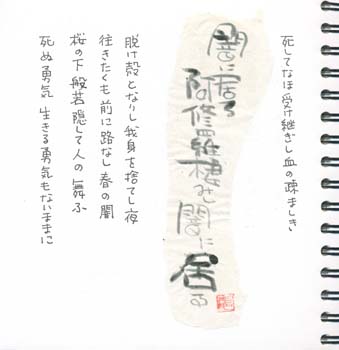 死してなほ受け継ぎし血の疎ましき
闇に居る
阿修羅棲む闇に
居る
脱け殻となりし我身を捨てし夜
往きたくも前に路なし春の闇
桜の下般若隠して人の舞ふ
死ぬ勇気生きる勇気もないままに